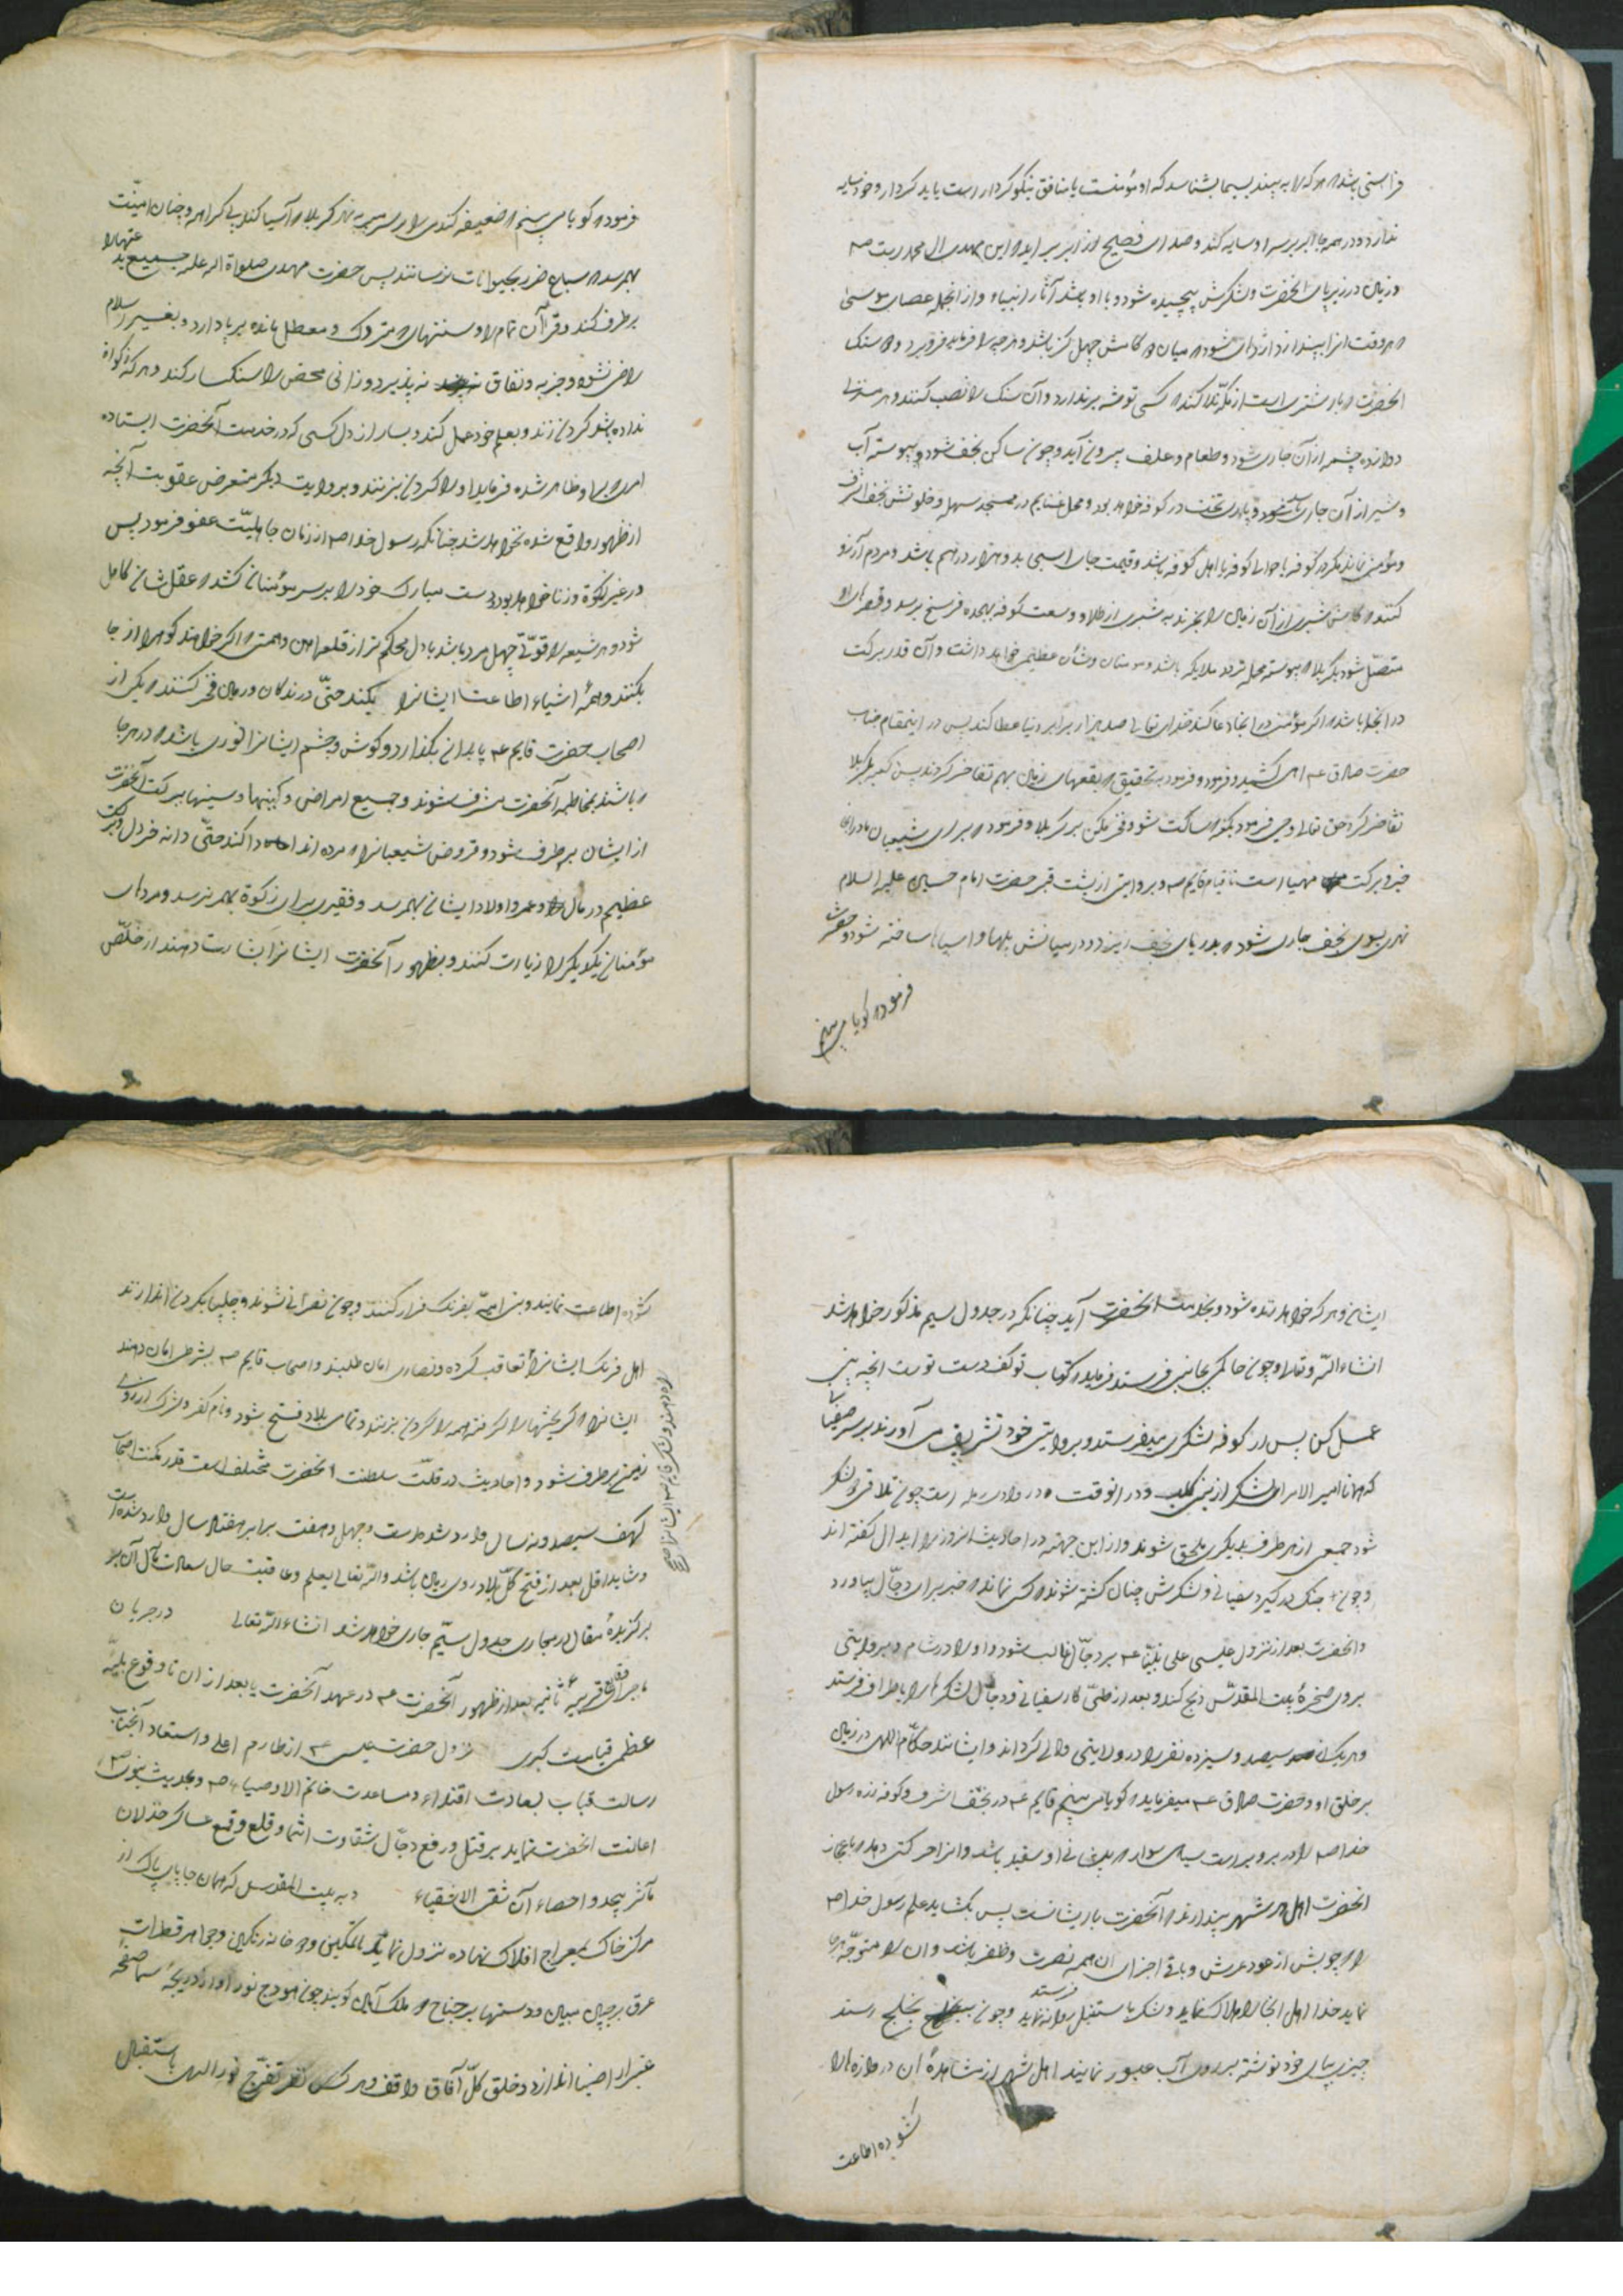 فراستی باشد که هر که را به بیند بسیما بشناسد که او مؤمنست یا منافق نیکو کردار است یا بد کردار و خود سایه
ندارد و در همه جا ابر بر سر او سایه کند و صدای فصیح از ابر برآید که این مهدی ال محمد است ص
و زمین در زیر پای آنحضرت و لشکرش پیچیده شود و با او باشد آثار انبیاء و از انجمله عصای موسی
که هر وقت انرا بیندازد اژدها شود که میان دو کامش چهل گز باشد و هر چه را فرماید فرو برد و سنگ
انحضرت که بار شتری است از مکه ندا کند که کسی توشه برندارد و آن سنگ را نصب کنند و هر منزلی
دوازده چشمه از آن جاری شود و طعام و علف بیرون آید و چون ساکن نجف شود پیوسته آب
و شیر از آن جاری باشد و پای تخت در کوفه خواهد بود و محل غنایم در مسجد سهله و خلوتش نجف اشرف
و مؤمن نماند مگر در کوفه یا حوالی کوفه یا اهل کوفه باشد و قیمت جای اسبی بدو هزار درهم باشد و مردم آرزو
کنند که کاش شبری از آن زمین را بخرند به شبری از طلا و وسعت کوفه بهجده فرسخ برسد و قصرهای او
متصل شود بکربلا که پیوسته محل تردد ملایکه باشد و مؤمنان و شأن عظیمی خواهد داشت و آن قدر برکت
در انجا باشد که اگر مؤمنی در انجا دعا کند خدای تعالی صد هزار برابر دنیا عطا کند پس در اینمقام جناب
حضرت صادق ع آهی کشید و فرمود و فرمود بتحقیق که بقعهای زمین بهم تفاخر کردند پس کعبه بر کربلا
تفاخر کرد حق تعالی وحی فرمود بکعبه که ساکت شو و فخر مکن بر کربلا و فرمود که برای شیعیان ما در آن
خیر و برکت مهیا است تا قیام قایم ع و بروایتی از پشت قبر حضرت امام حسین علیه السلام
نهری بسوی نجف جاری شود که بدریای نجف ریزد و در میانش پلها و آسیاها ساخته شود و حضرت
فرموده گویا می بینم
فرموده گویا می بینم که ضعیفه گندمی را بر سر به نهر کربلا که آسیا کند بی کرایه و چنان امنیت
بهمرسد که سباع ضرر بحیوانات نرسانند پس حضرت مهدی صلواة الله علیه جمیع بدعتها را
برطرف کند و قرآن تمام را و سنتهای متروک و معطل مانده بر پا دارد و بغیر اسلام
راضی نشود و جزیه و نفاق نه پذیرد و زانی محض را سنگسار کند و هر که زکواة
نداده باشد گردن زند و بعلم خود عمل کند و بسا راز دل کسی که در خدمت آنحضرت ایستاده
امر او ظاهر شده فرماید او را گردن بزنند و بروایت دیگر متعرض عقوبت آنچه
از ظهور واقع شده نخواهد شد چنانکه رسول خدا ص از زمان جاهلیت عفو فرمود پس
در غیر زکوة و زنا خواهد بود دست مبارک خود را بر سر مؤمنان کشد که عقل شان کامل
شود و هر شیعه را قوت چهل مرد باشد با دل محکم تر از قلعه آهن و همتی که اگر خواهند کوه را از جا
بکنند و همهٔ اشیاء اطاعت ایشانرا بکنند حتی درندگان و زمین فخر کنند که یکی از
اصحاب حضرت قایم ع پا بدانی بگذارد و گوش و چشم ایشانرا نوری باشد که در هر جا
که باشند بمخاطبه آنحضرت مشرف شوند و جمیع امراض و کینها و سینها ببرکت آنحضرت
از ایشان برطرف شود و قروض شیعیانرا که مرده اند ادا کند حتی دانه خردل و برکت
عظیم در مال و عمر و اولاد ایشان بهمرسد و فقیری برای زکوة بهم نرسد و مردهای
مؤمنان یکدیگر را زیارت کنند و بظهور آنحضرت ایشانرا بشارت دهند از خلص
ایشان و هر که خواهد زنده شود و بخدمت انحضرت آید چنانکه در جدول سیم مذکور خواهد شد
انشاء الله و تعالی و چون حاکمی بجانبی فرستد فرماید که کتاب تو کف دست توست انچه بینی
عمل کن پس از کوفه لشکری میفرستد و بروایتی خود تشریف می آورند بر سر سفیانی
که همانا امیر الامرای لشکر از بنی کلب و در انوقت در وادی رمله است چون تلاقی دو لشکر
شود جمعی از هر طرف بدیگری ملحق شوند و از این جهته در احادیث انروز را ابدال گفته اند
و چون جنگ در گیرد سفیانی و لشکرش چنان کشته شوند که کسی نماند که خبر برای دجال بیاورد
و انحضرت بعد از نزول عیسی علی نبینا ع بر دجال غالب شود و او را در شام و بروایتی
بر روی صخرهٔ بیت المقدس ذبح کند و بعد از طی کار سفیانی و دجال لشکرها را باطراف فرستد
و هر یک از سیصد و سیزده نفر را در ولایتی والی گرداند و ایشانند حکام اللهی در زمین
بر خلق او و حضرت صادق ع میفرماید که گویا می بینم قایم ع در نجف اشرف و کوفه زره رسول
خدا ص را در بر و بر است سیاهی سوار که پیشانی او سفید باشد و انرا حرکتی دهد که باعجاز
انحضرت اهل هر شهر پندارند که آنحضرت بار ایشانست پس بگشاید علم رسول خدا ص
را که چوبش از عود عرش و باقی اجزای آن همه نصرت و ظفر باشد و ان را متوجه هر جا
نماید خدا اهل انجا را هلاک نماید و لشکر باستنبل روانه نماید فرستد و چون بخلیج رسند
چیزی بپای خود نوشته بر روی آب عبور نمایند اهل شهر از مشاهدهٔ آن دروازه ها را
گشوده اطاعت
گشوده اطاعت نمایند و بنی امیه بفرنگ فرار کنند و چون نصرانی شوند و چلیپا بگردن اندازند
اهل فرنگ ایشانرا تعاقب کرده و نصاری امان طلبند و اصحاب قایم ع بشرطی امان دهند
ایشانرا که گریختها را گرفته همه را گردن بزنند و تمامی بلاد فتح شود و نام کفر و شرک از روی
زمین برطرف شود و احادیث در قلت سلطنت انحضرت مختلف است قدر مکث اصحاب
کهف سیصد و نه سال وارد شده است و چهل و هفت برابر هفتاد سال وارد شده است
و شاید اقل بعد از فتح کل بلاد روی زمین باشد و الله تعالی یعلم و عاقبت حال سعادت مآل آن بر
برگزیدهٔ متعال در مجاری جدول سیم جاری خواهد شد انشاء الله تعالی در جریان
ماجرای قریبهٔ ثانیه بعد از ظهور آنحضرت ع در عهد آنحضرت یا بعد از ان تا وقوع بلیهٔ
عظمی قیامت کبری نزول حضرت عیسی ع از طارم اعلی و استعداد آنجناب
رسالت قباب لسعادت اقتداء و مساعدت خاتم الاوصیاء ص
اعانت انحضرت نماید بر قتل و رفع دجال شقاوت انتما و قلع و قمع عساکر خذلان
مآثر بیحد و احصاء آن شقی الاشقیاء و به بیت المقدس که همان جا پای پاک از
مرکز خاک بمعراج افلاک نهاده نزول نماید وجواهر قطرات
عرق بر جبین مبین و دستها بر جناح دو ملک آمین گویند چون هودج نور او از دریچهٔ سما صفحه
غبرا را ضیا اندازد و خلق کل آفاق واقف و هر کس تفرج نور الهی باستقبال